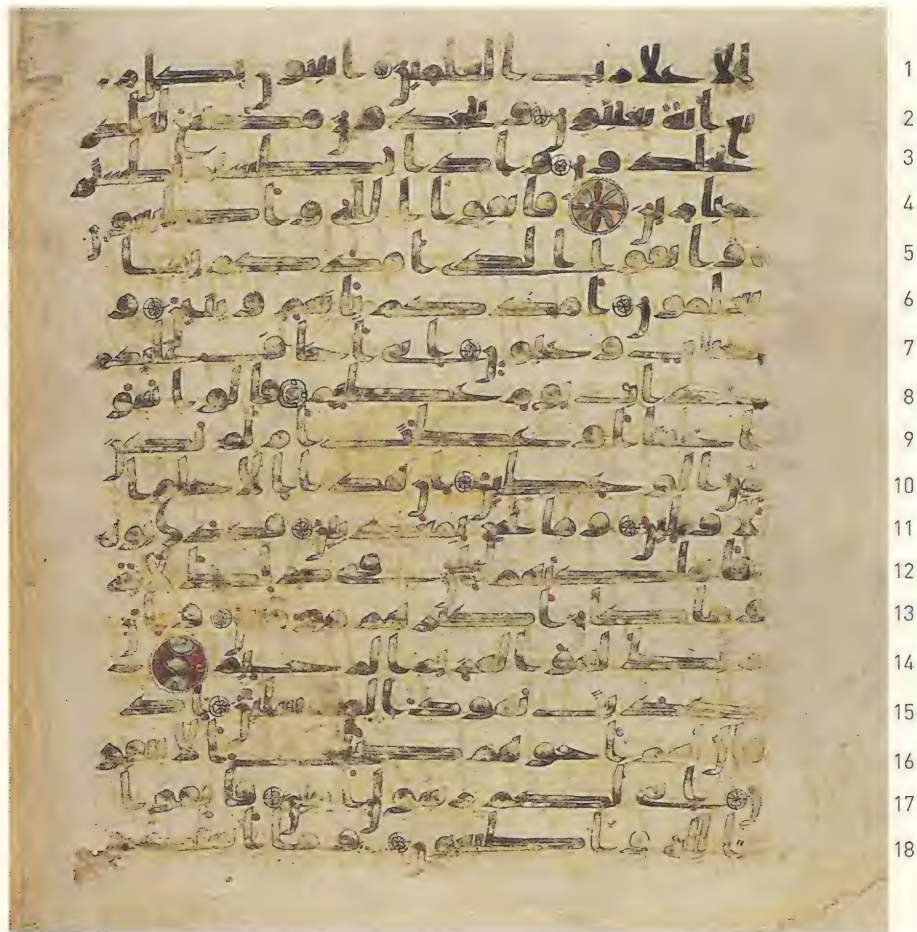 الا على رب العلمين اتبنون بكل ر 1
يع اية تعبثون وتتخذون مصنع لعلكم 2
تخلدون واذا بطشتم بطشتم 3
جبارين فاتقوا الله واطيعو 4
ن واتقوا الذى امدكم بما 5
تعلمون امدكم بانعم وبنين و 6
جنت وعيون انى اخاف عليكم 7
عذاب يوم عظيم قالوا سو 8
ا علينا اوعظت ام لم تكن 9
من الوعظين ان هذا الا خلق ا 10
لاولين وما نحن بمعذبين فكذبو 11
ه فاهلكنهم ان فى ذلك لاية 12
وما كان اكثرهم مومنين وان 13
ربك لهو العزيز الرحيم 14
كذبت ثمود المرسلين اذ 15
قال لهم اخوهم صلح الا تتقو 16
ن انى لكم رسول امين فاتقوا 17
الله واطيعون وما اسلكم 18